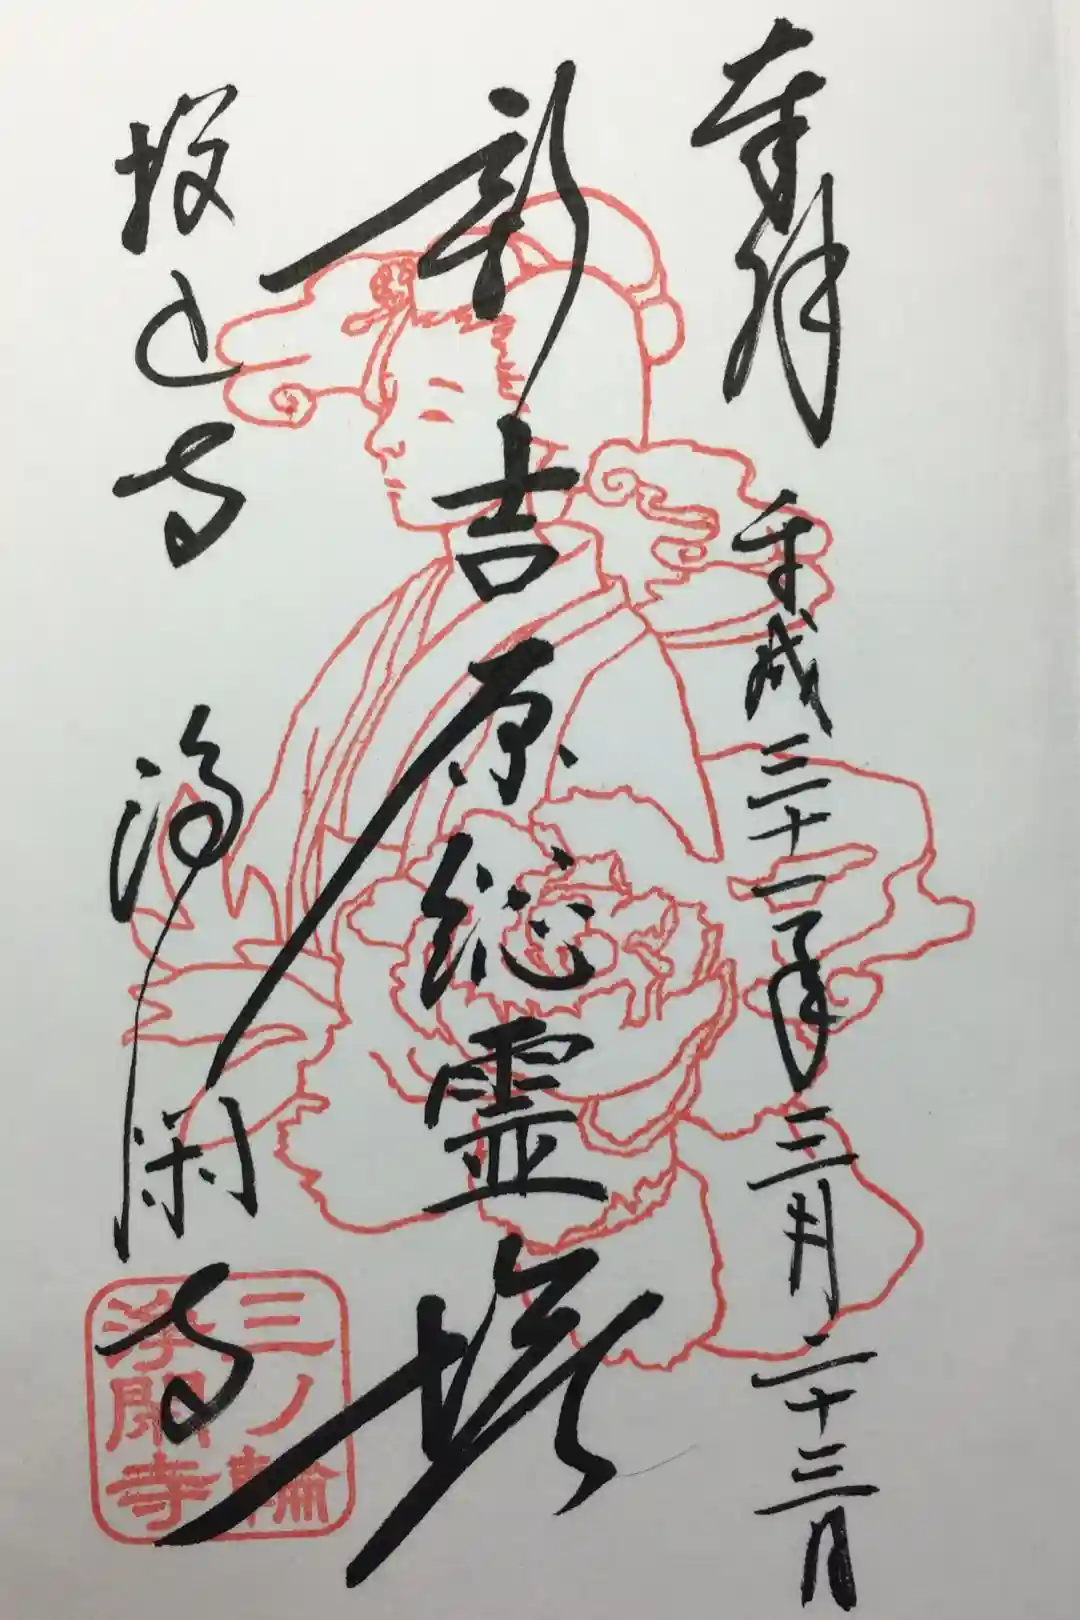 奉拝 平成三十一年三月二十三日
新吉原総霊塔
投込寺 浄閑寺
三ノ輪
浄閑寺